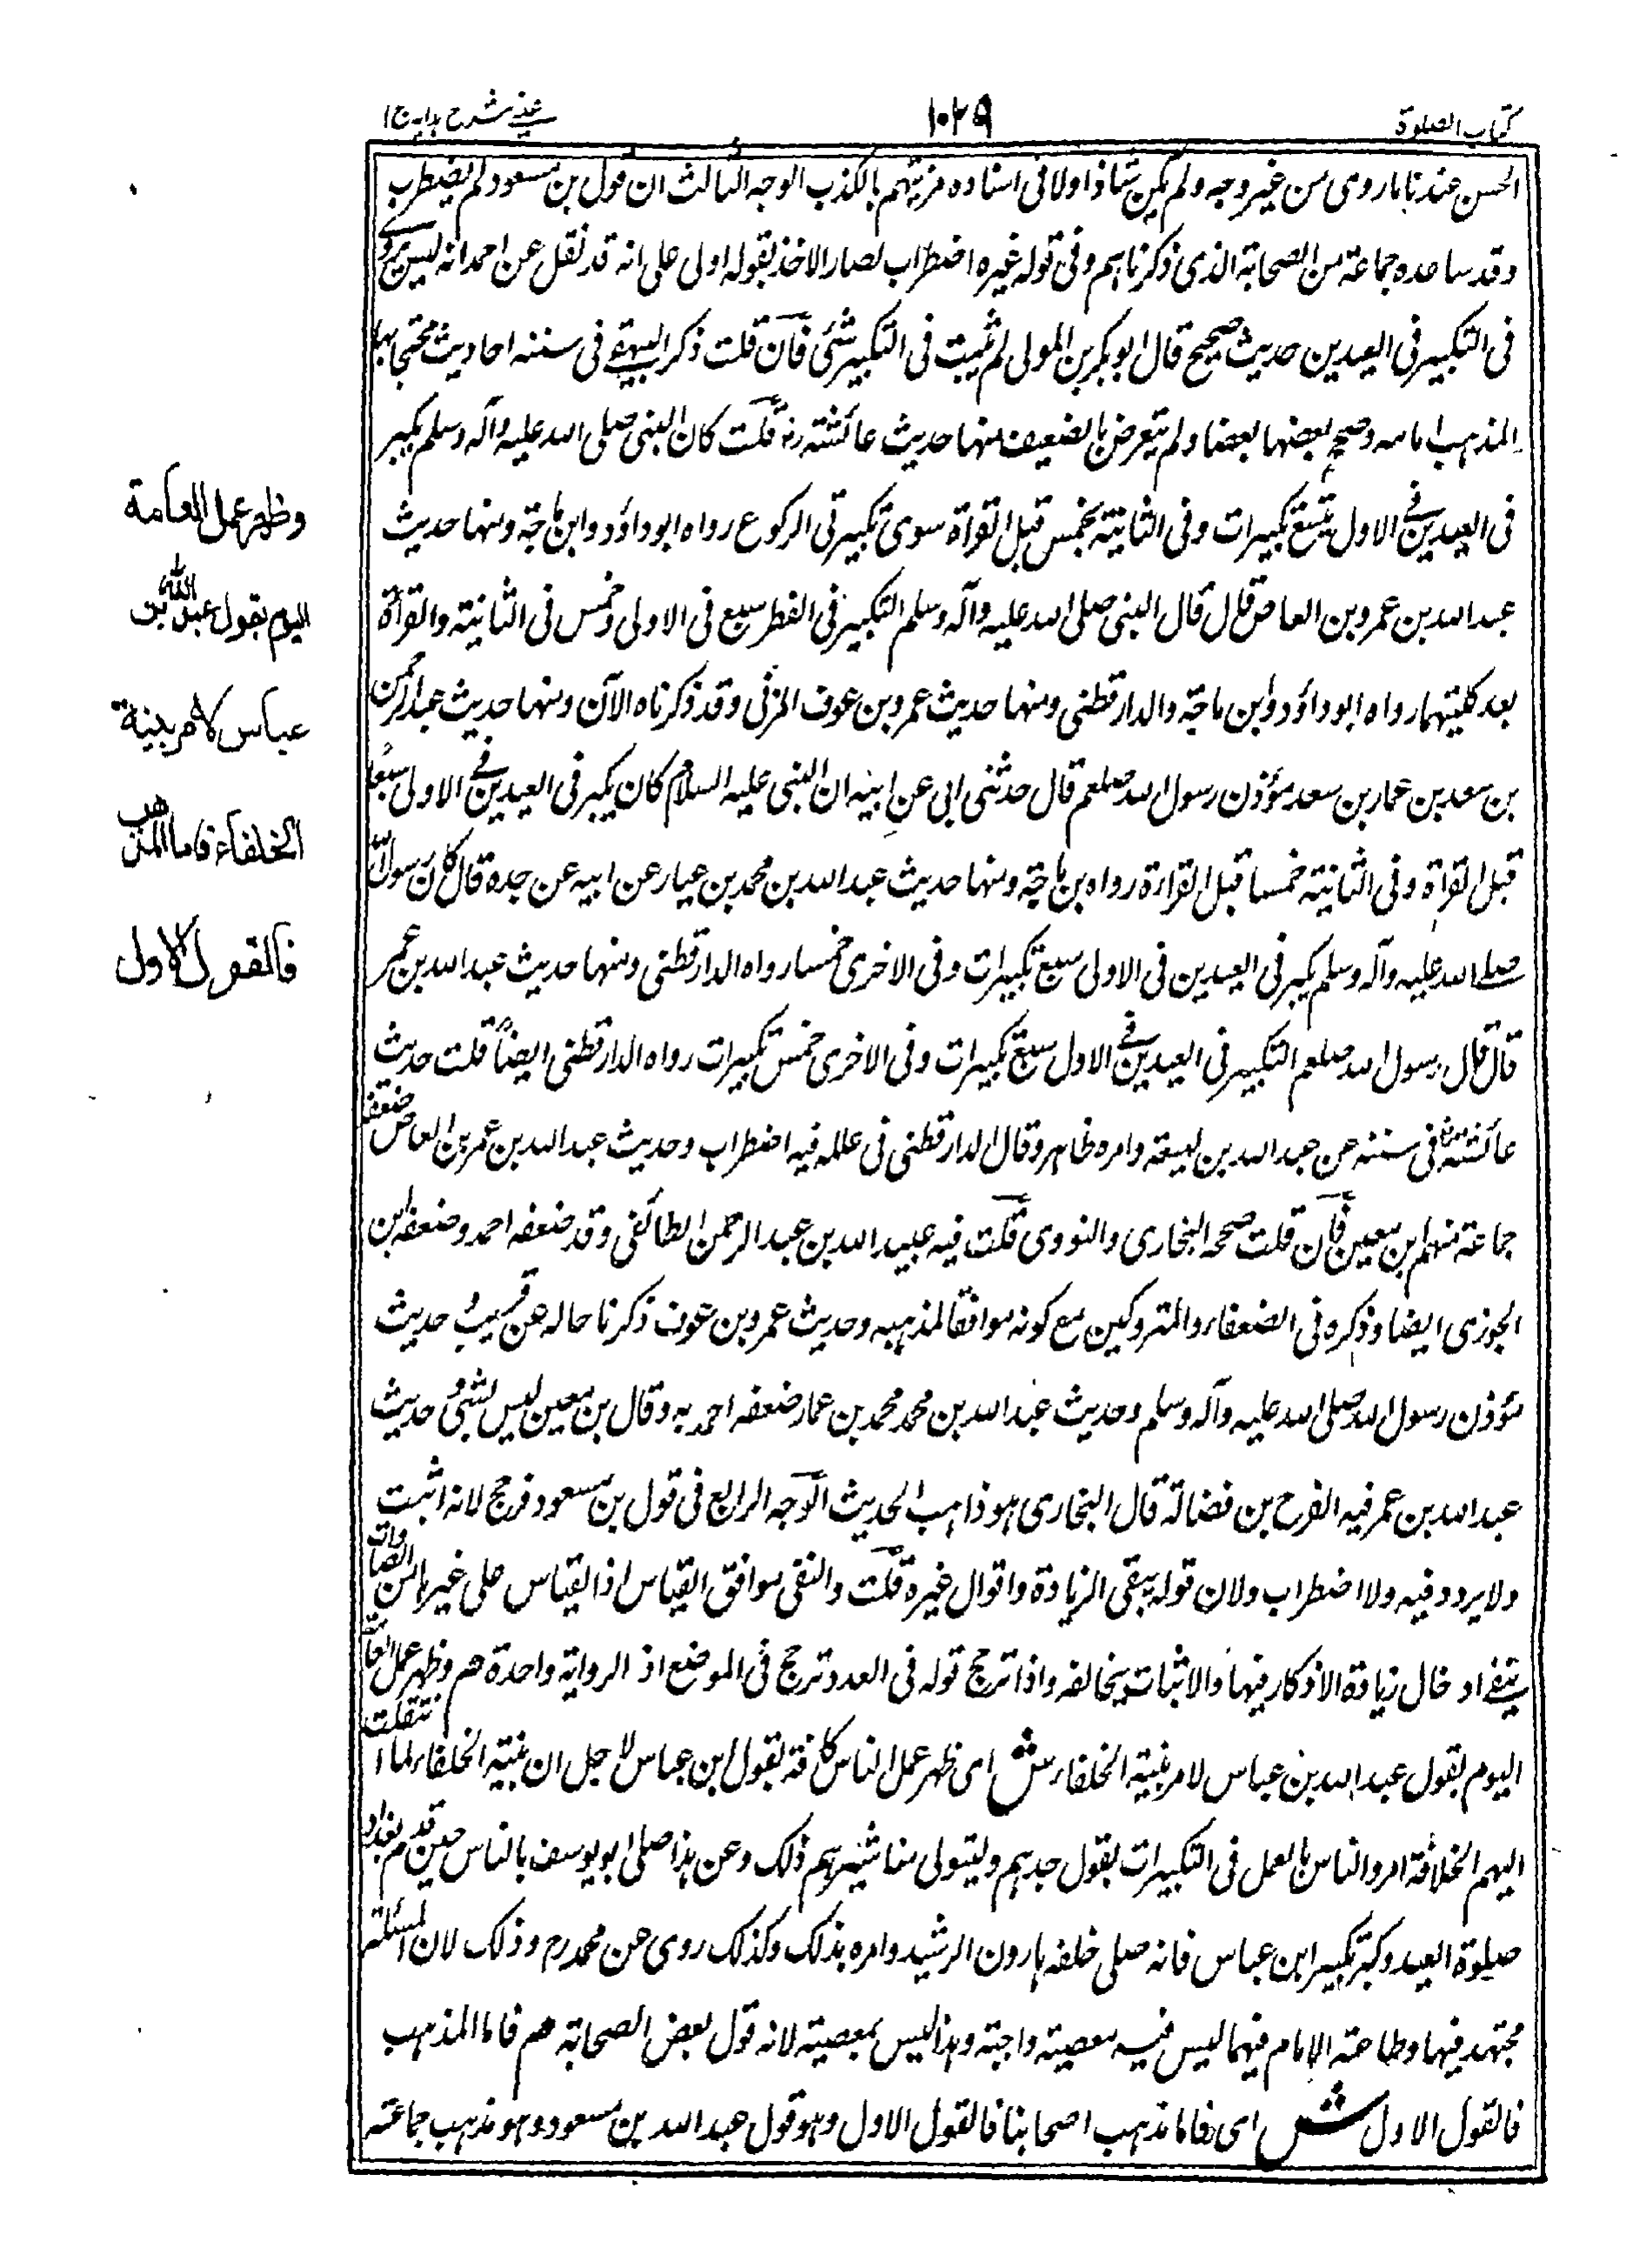 كتاب الصلوة
١٠٢٩
عينى شرح هدايه ج ١
الحسن عندنا ما روى من غير وجه ولم يكن شاذا ولا فى اسناده من يتهم بالكذب الوجه الثالث ان قول بن مسعود لم يضطرب
وقد ساعده جماعة من الصحابة الذى ذكرناهم وفى قوله غيره اضطراب لصار الاخذ بقوله اولى على انه قد نقل عن احمد انه ليس يروى
فى التكبير فى العيدين حديث صحيح قال ابو بكر بن المولى لم يثبت فى التكبير شئى فان قلت ذكر البيهقى فى سننه احاديث محتجا بها
لمذهب امامه وصحح بعضها بعضا ولم يتعرض بالضعيف منها حديث عائشته رض قلت كان النبى صلى الله عليه وآله وسلم يكبر
فى العيدين فى الاول بتسع تكبيرات وفى الثانيته بخمس قبل القرأة سوى تكبيرتى الركوع رواه ابو داؤد وابن ماجة ومنها حديث
عبد الله بن عمرو بن العاص قال قال النبى صلى الله عليه وآله وسلم التكبير فى الفطر سبع فى الاولى وخمس فى الثانيته والقرأة
بعد كليتهما رواه ابو داؤد وابن ماجة والدارقطنى ومنها حديث عمرو بن عوف المزنى وقد ذكرناه الآن ومنها حديث عبد الرحمن
بن سعد بن عمار بن سعد مؤذن رسول الله صلعم قال حدثنى ابى عن ابيه ان النبى عليه السلام كان يكبر فى العيدين فى الاولى سبعا
قبل القرأة وفى الثانيته خمسا قبل القراءة رواه بن ماجة ومنها حديث عبد الله بن محمد بن عمار عن ابيه عن جده قال كان رسول الله
صلى الله عليه وآله وسلم يكبر فى العيدين فى الاولى سبع تكبيرات وفى الاخرى خمسا رواه الدارقطنى ومنها حديث عبد الله بن عمر
قال قال رسول الله صلعم التكبير فى العيدين فى الاول سبع تكبيرات وفى الاخرى خمس تكبيرات رواه الدارقطنى ايضاً قلت حديث
عائشته فى سننه عن عبد الله بن لهيعة وامره ظاهر وقال الدارقطنى فى علله فيه اضطراب وحديث عبد الله بن عمر بن العاص ضعفه
جماعة منهم ابن معين فان قلت صححه البخارى والنووى قلت فيه عبيد الله بن عبد الرحمن الطائفى وقد ضعفه احمد وضعفه ابن
الجوزى ايضا وذكره فى الضعفاء والمتروكين مع كونه موافقا لمذهبه وحديث عمرو بن عوف ذكرنا حاله عن قريب وحديث
مؤذن رسول الله صلى الله عليه وآله وسلم وحديث عبد الله بن محمد محمد بن عمار ضعفه احمد به وقال بن معين ليس بشئ وحديث
عبد الله بن عمر فيه الفرح بن فضالة قال البخارى هو ذاهب الحديث الوجه الرابع فى قول بن مسعود فرجح لانه اثبت
ولا يردد فيه ولا اضطراب ولان قوله يبقى الزيادة واقوال غيره قلت والنفى موافق القياس اذ القياس على غيرها من الصلوات
ينفى ادخال زيادة الاذكار فيها والاثبات يخالفه واذا ترجح قوله فى العدد ترجح فى الموضع اذ الرواية واحدة هم وظهر عمل العامة
اليوم بقول عبد الله بن عباس لامر بنيه الخلفاء ش اى ظهر عمل الناس كافة بقول ابن عباس لاجل ان بنيه الخلفاء لما انتقلت
اليهم الخلافة امروا الناس بالعمل فى التكبيرات بقول جدهم وليتولى مناشيرهم ذلك وعن هذا صلى ابو يوسف بالناس حين قدم بغداد
صلوة العيد وكبر تكبير ابن عباس فانه صلى خلفه هارون الرشيد وامره بذلك وكذلك روى عن محمد رح وذلك لان المسئلة
مجتهد فيها وطاعة الامام فيما ليس فيه معصيته واجبة وهذا ليس بمعصيته لانه قول بعض الصحابة هم فاما المذهب
فالقول الاول ش اى فاما مذهب اصحابنا فالقول الاول وهو قول عبد الله بن مسعود وهو مذهب جماعته
وظهر عمل العامة
اليوم بقول عبد الله بن
عباس لامر بنية
الخلفاء فاما المذهب
فالقول الاول